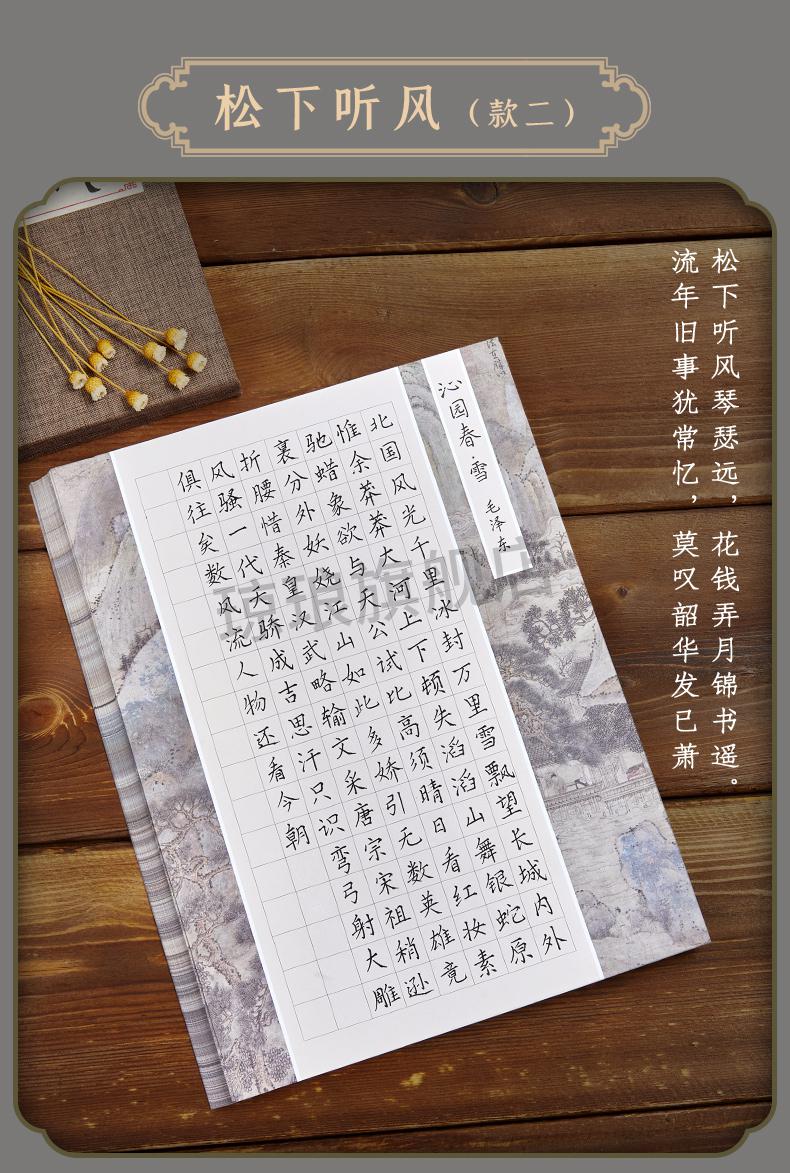 松下听风（款二）
松下听风琴瑟远，花钱弄月锦书遥。
流年旧事犹常忆，莫叹韶华发已萧
沁园春·雪 毛泽东
北国风光千里冰封万里雪飘望长城内外
惟余莽莽大河上下顿失滔滔山舞银蛇原
驰蜡象欲与天公试比高须晴日看红妆素
裹分外妖娆江山如此多娇引无数英雄竞
折腰惜秦皇汉武略输文采唐宗宋祖稍逊
风骚一代天骄成吉思汗只识弯弓射大雕
俱往矣数风流人物还看今朝
旗舰店